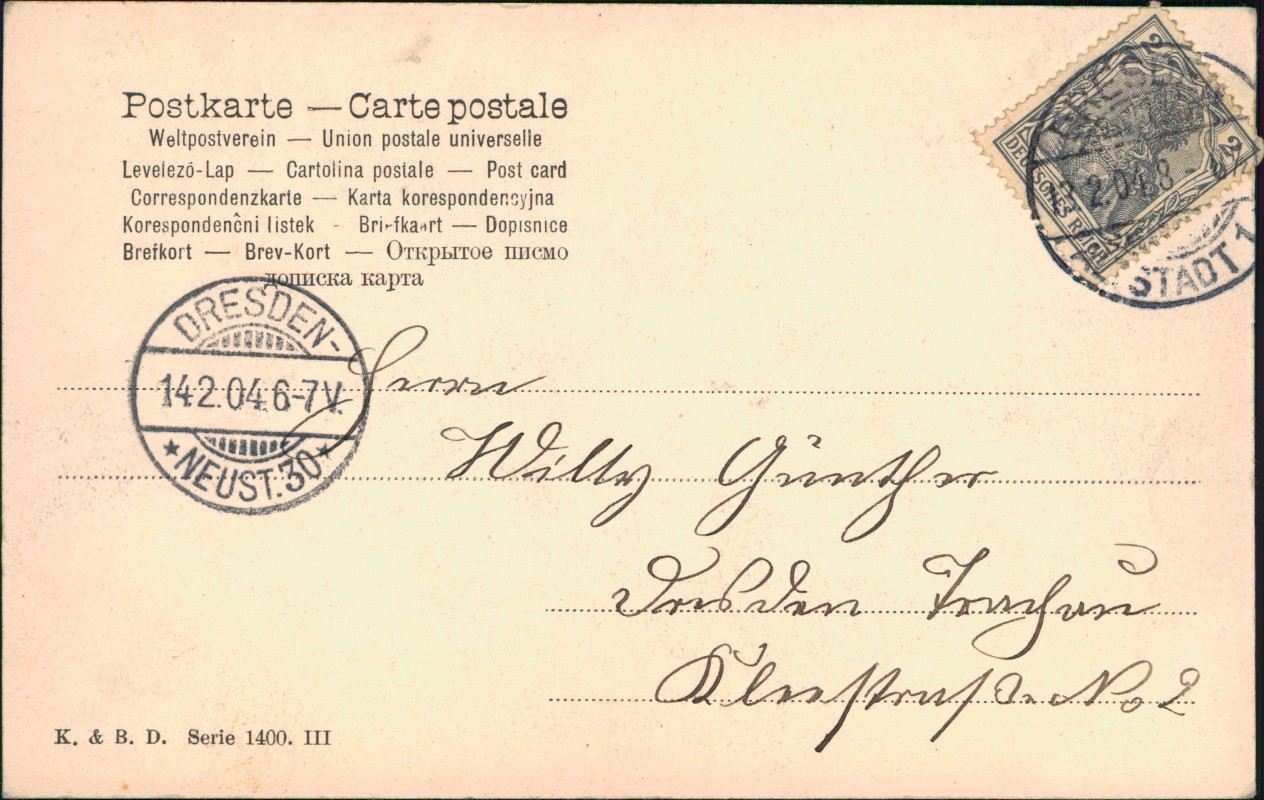 Postkarte — Carte postale
Weltpostverein — Union postale universelle
Levelező-Lap — Cartolina postale — Post card
Correspondenzkarte — Karta korespondencyjna
Korespondenčni listek - Briefkaart — Dopisnice
Brefkort — Brev-Kort — Открытое писмо
дописка карта
2
2
DEUTSCHES REICH
2.04.8
STADT 1
DRESDEN-
14.2.04.6-7V.
★ NEUST.30 ★
Herrn
Willy Günther
Dresden Trachau
Kleestraße No 2
K. & B. D. Serie 1400. III